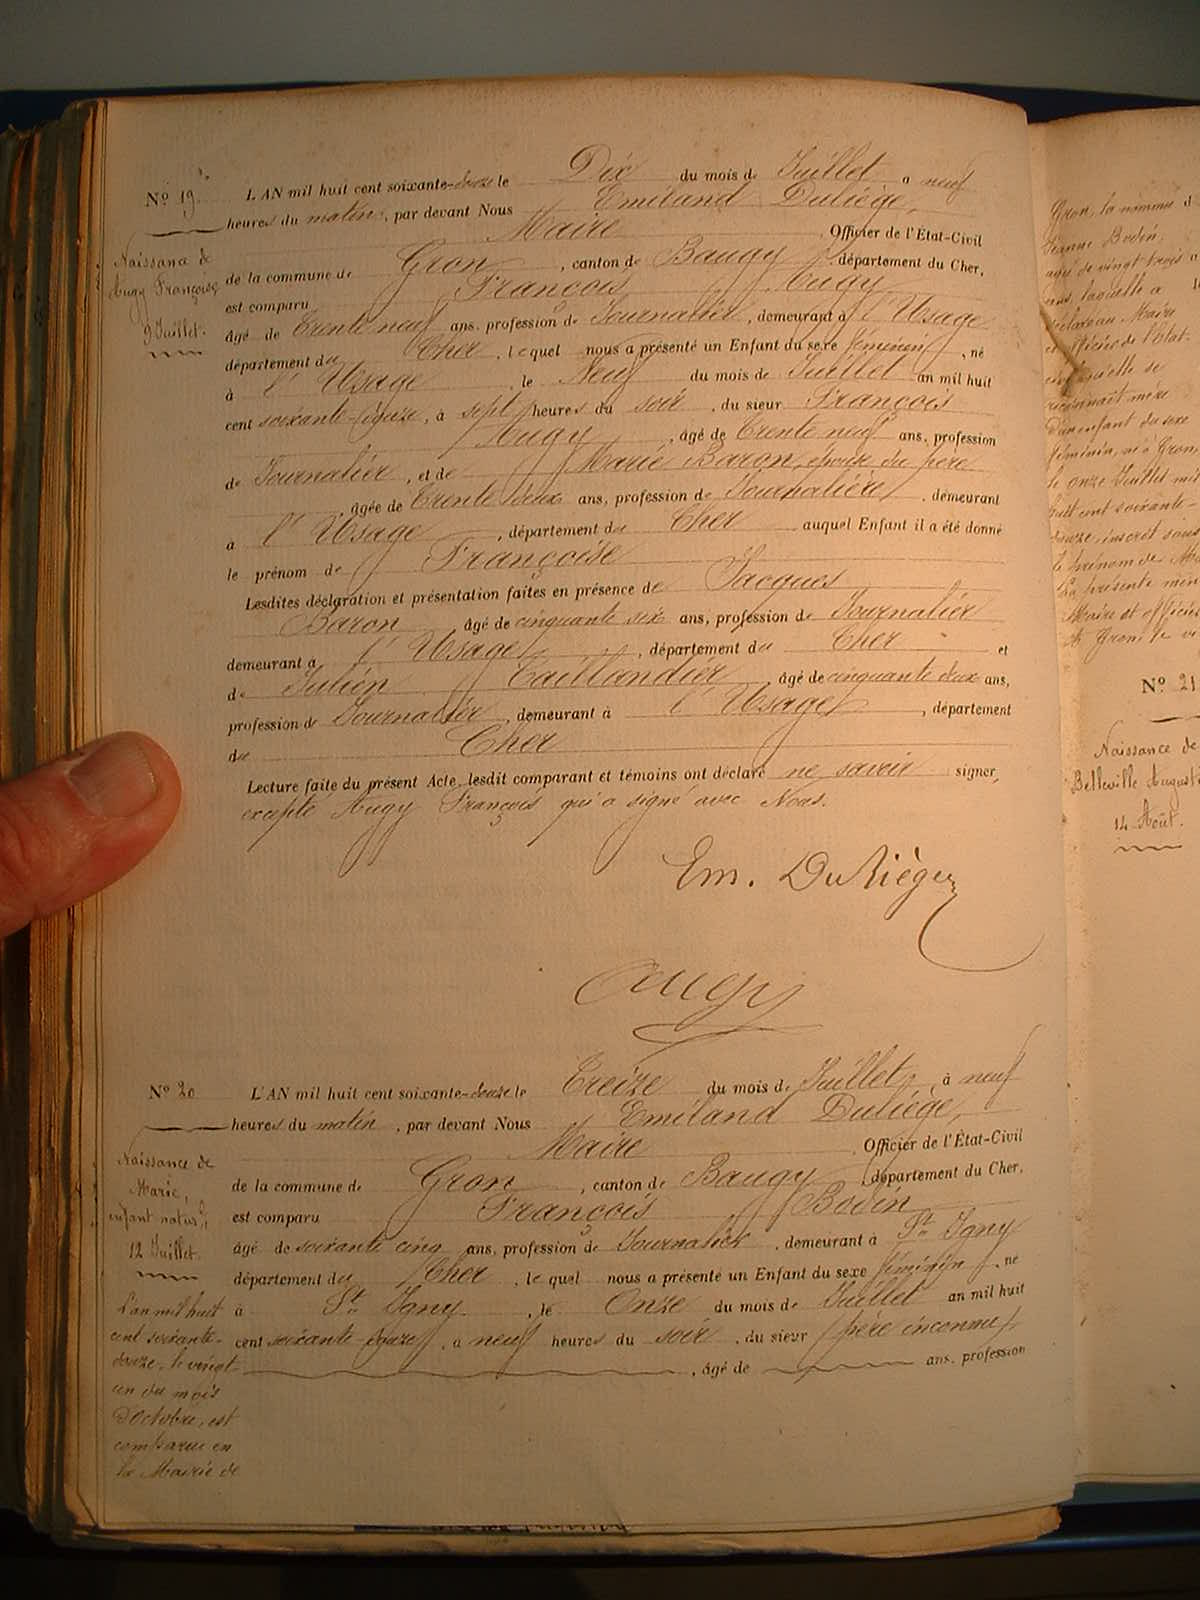 Nº 19.
Naissance de
Augy Françoise
9 Juillet.
L'AN mil huit cent soixante-douze le Dix du mois de Juillet a neuf
heures du matin, par devant Nous Emiland Duliège,
Maire Officier de l'État-Civil
de la commune de Gron, canton de Baugy, département du Cher,
est comparu François Augy
âgé de trente neuf ans, profession de Journalier, demeurant à l'Usage
département du Cher, lequel nous a présenté un Enfant du sexe féminin, né
à l'Usage, le Neuf du mois de Juillet an mil huit
cent soixante-douze, à sept heures du soir, du sieur François
Augy, âgé de trente neuf ans, profession
de Journalier, et de Marie Baron, épouse du père
, âgée de trente deux ans, profession de Journalière, demeurant
à l'Usage, département du Cher auquel Enfant il a été donné
le prénom de Françoise
Lesdites déclaration et présentation faites en présence de Jacques
Baron, âgé de cinquante six ans, profession de Journalier
demeurant à l'Usage, département du Cher et
de Julien Taillandier, âgé de cinquante deux ans,
profession de Journalier, demeurant à l'Usage, département
du Cher
Lecture faite du présent Acte, lesdit comparant et témoins ont déclaré ne savoir signer,
excepté Augy François qui a signé avec Nous.
Em. Duliège
Augy
Nº 20
Naissance de
Marie,
enfant natur.
12 Juillet.
L'an mil huit
cent soixante-
douze, le vingt
un du mois
d'octobre, est
comparue en
la Mairie de
L'AN mil huit cent soixante-douze le Treize du mois de Juillet, à neuf
heures du matin, par devant Nous Emiland Duliège,
Maire Officier de l'État-Civil
de la commune de Gron, canton de Baugy, département du Cher,
est comparu François Bodin
âgé de soixante cinq ans, profession de Journalier, demeurant à St Igny
département du Cher, lequel nous a présenté un Enfant du sexe féminin, né
à St Igny, le Onze du mois de Juillet an mil huit
cent soixante-douze, a neuf heures du soir, du sieur père inconnu
, âgé de ans, profession
Gron, la nommée
Jeanne Bodin,
agée de vingt trois
ans, laquelle a
déclaré au Maire
et officier de l'état-
civil qu'elle se
reconnaît mère
d'un enfant du sexe
féminin, né à Gron,
le onze Juillet mil
huit cent soixante-
douze, inscrit sous
le prénom de
La présente
Maire et officier
Gron le
Nº 21
Naissance de
Belleville August
14 Août.